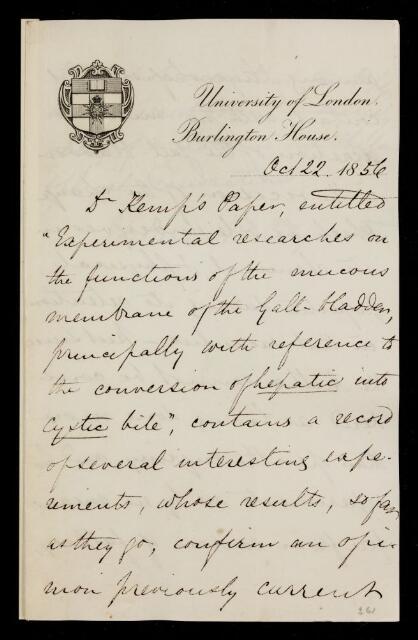 University of London.
Burlington House.
Oct 22. 1856
Dr Kemp's Paper, entitled
"Experimental researches on
the functions of the mucous
membrane of the Gall-bladder,
principally with reference to
the conversion of hepatic into
cystic bile", contains a record
of several interesting expe-
riments, whose results, so far
as they go, confirm an opi-
nion previously current
261